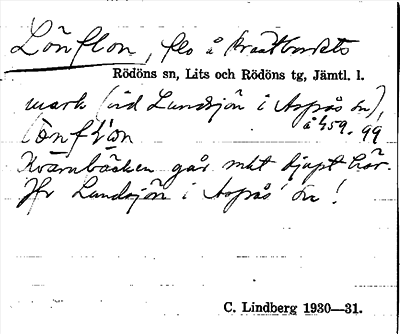 Lönflon, flo å Kraatbordets
Rödöns sn, Lits och Rödöns tg, Jämtl. l.
mark (vid Lundsjön i Aspås sn),
å 459. 99
Kvarnbäcken går mkt djupt här.
Jfr Lundsjön i Aspås sn!
C. Lindberg 1930—31.